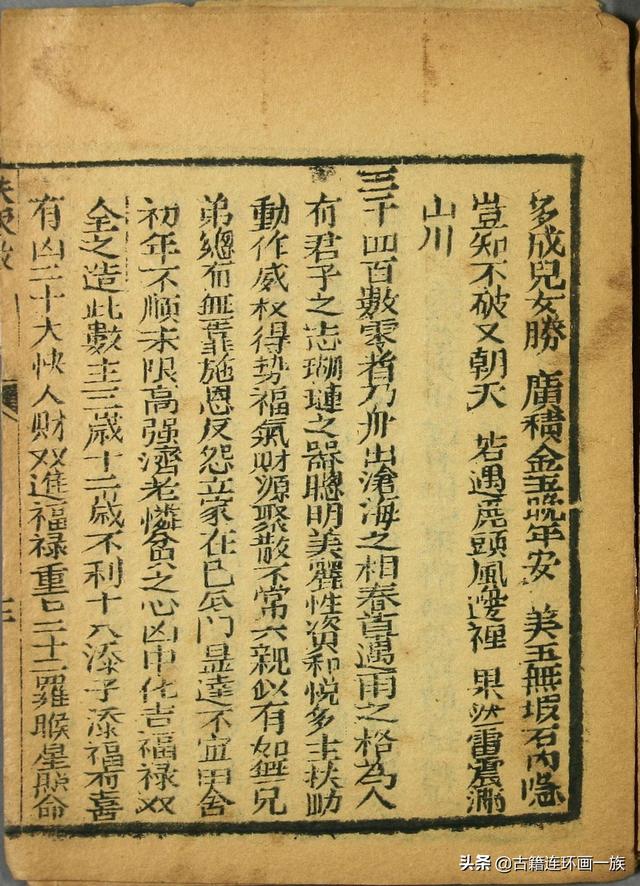 多成兒女勝 廣積金玉晚年安 美玉無瑕石內隐
豈知不破又朝天 若遇鹿頭風邊裡 果然雷震滿
山川
三千四百數零者乃舟出滄海之相春苗遇雨之格為人
有君子之志瑚璉之器聰明美麗性資和悅多主扶助
動作威权得势福氣財源聚散不常六親似有如無兄
弟總有無靠施恩反怨立家在已瓜門显達不宜田舍
初年不順末限高强濟老憐貧之心凶中化吉福禄双
全之造此數主三歲十二歲不利十八添子添福有喜
有凶三十大快人財双進福禄重重二十二羅睺星照命
头条 @古籍连环画一族